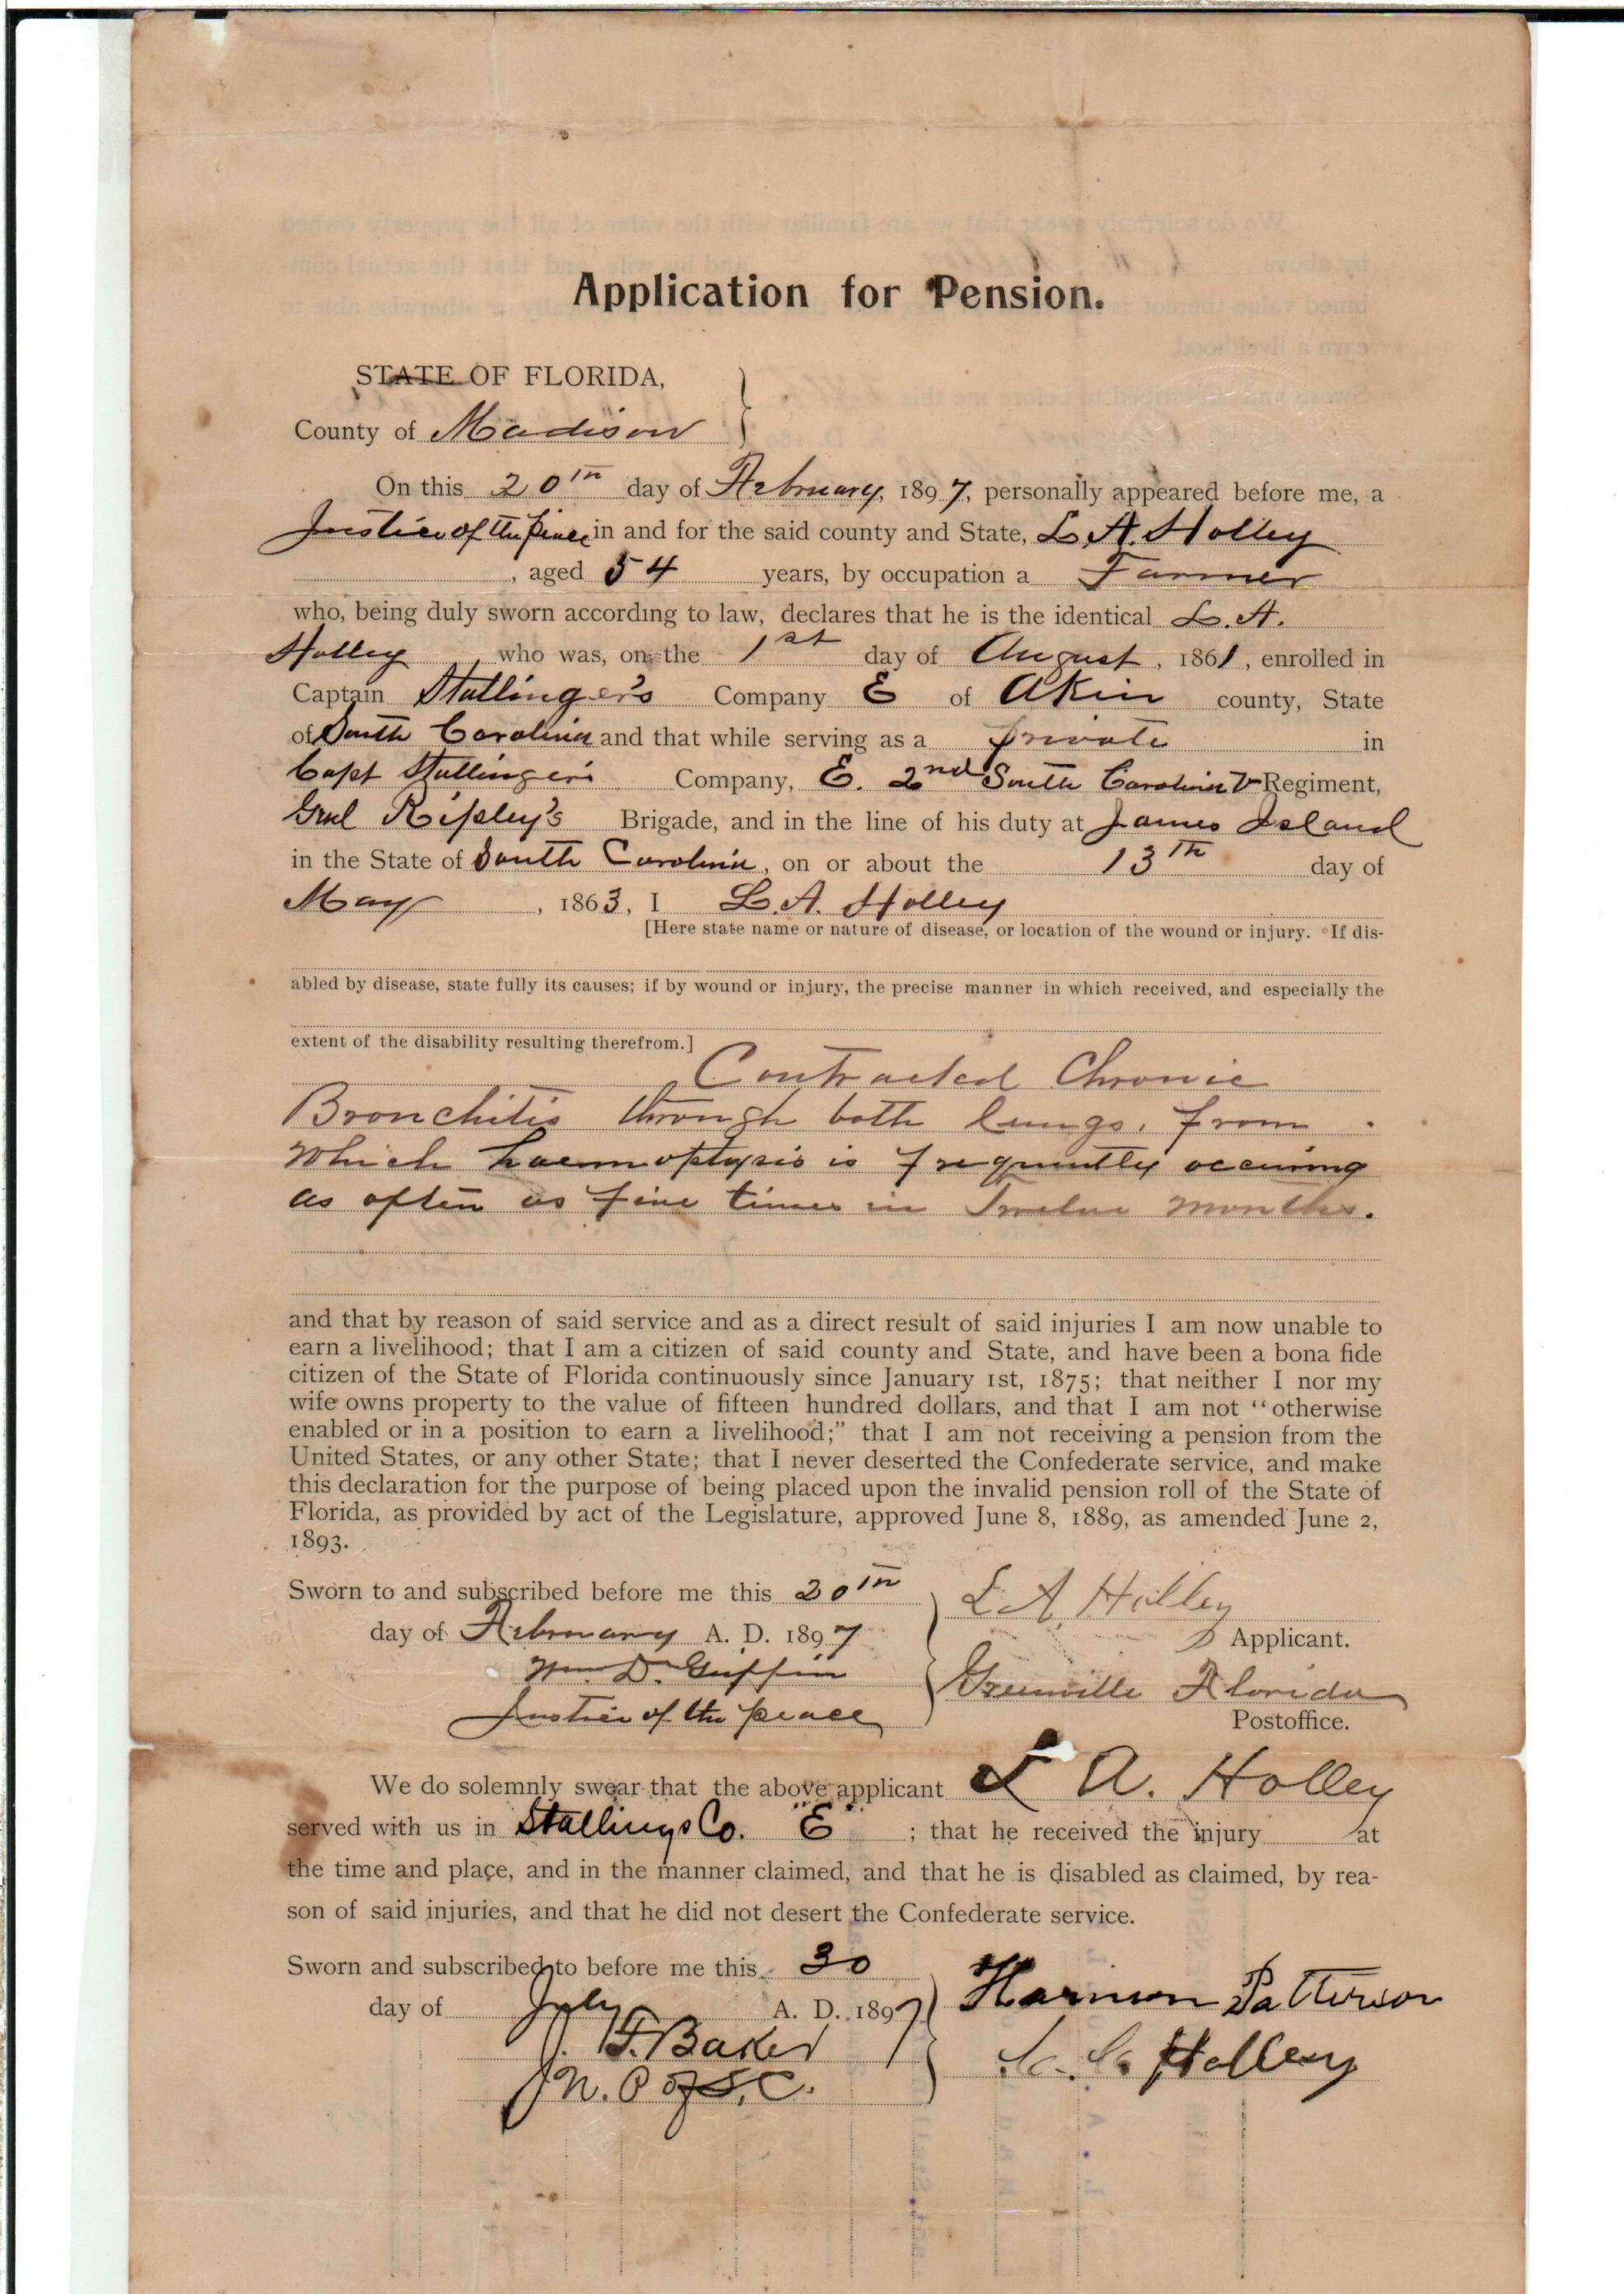 Application for Pension.
STATE OF FLORIDA,
County of Madison
On this 20th day of February, 1897, personally appeared before me, a
Justice of the peace in and for the said county and State, L. A. Holley
, aged 54 years, by occupation a Farmer
who, being duly sworn according to law, declares that he is the identical L. A.
Holley who was, on the 1st day of August, 1861, enrolled in
Captain Stallinger's Company E of Akin county, State
of South Carolina and that while serving as a private in
Capt Stallinger's Company, E. 2nd South Carolina V Regiment,
Genl Ripley's Brigade, and in the line of his duty at James Island
in the State of South Carolina, on or about the 13th day of
May, 1863, I L. A. Holley
[Here state name or nature of disease, or location of the wound or injury. If dis-
abled by disease, state fully its causes; if by wound or injury, the precise manner in which received, and especially the
extent of the disability resulting therefrom.]
Contracted Chronic
Bronchitis through both lungs, from
which haemoptysis is frequently occuring
as often as five times in Twelve months.
and that by reason of said service and as a direct result of said injuries I am now unable to
earn a livelihood; that I am a citizen of said county and State, and have been a bona fide
citizen of the State of Florida continuously since January 1st, 1875; that neither I nor my
wife owns property to the value of fifteen hundred dollars, and that I am not "otherwise
enabled or in a position to earn a livelihood;" that I am not receiving a pension from the
United States, or any other State; that I never deserted the Confederate service, and make
this declaration for the purpose of being placed upon the invalid pension roll of the State of
Florida, as provided by act of the Legislature, approved June 8, 1889, as amended June 2,
1893.
Sworn to and subscribed before me this 20th
day of February A. D. 1897
Wm. D. Griffin
Justice of the peace
L A Holley
Applicant.
Greenville Florida
Postoffice.
We do solemnly swear that the above applicant L A. Holley
served with us in Stallings Co. "E" ; that he received the injury at
the time and place, and in the manner claimed, and that he is disabled as claimed, by rea-
son of said injuries, and that he did not desert the Confederate service.
Sworn and subscribed to before me this 30
day of July A. D. 1897
J. F. Baker
N. P of S. C.
Harmon Patterson
Holley